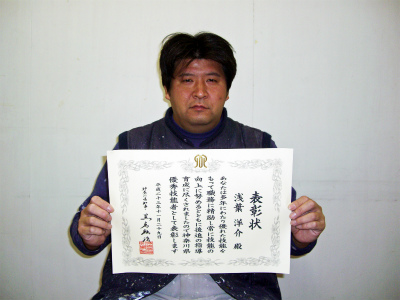 表彰状
浅葉 洋介 殿
あなたは多年にわたり優れた技能を
もって職務に精励し常に技能の
向上に努めるとともに後進の指導
育成に尽くされましたので神奈川県
優秀技能者として表彰します
平成二十二年十一月二十九日